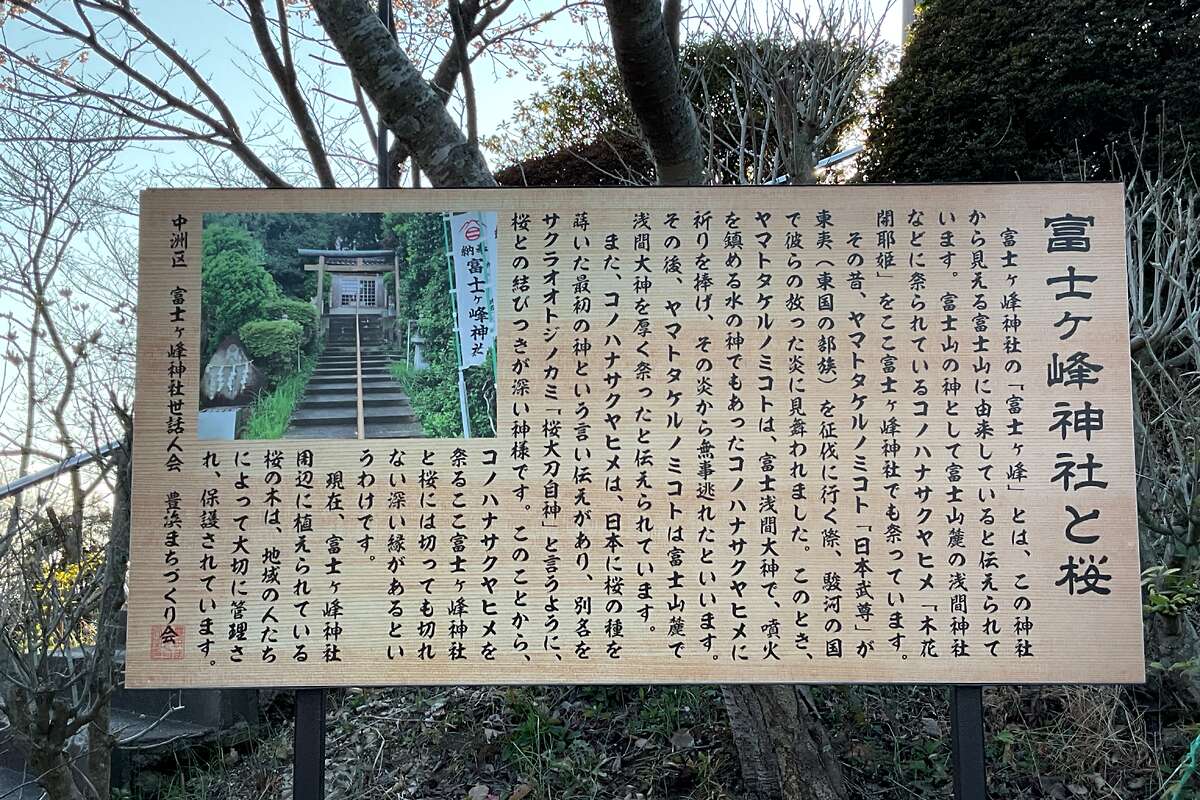 富士ヶ峰神社と桜
富士ヶ峰神社の「富士ヶ峰」とは、この神社
から見える富士山に由来していると伝えられて
います。富士山の神として富士山麓の浅間神社
などに祭られているコノハナサクヤヒメ「木花
開耶姫」をここ富士ヶ峰神社でも祭っています。
その昔、ヤマトタケルノミコト「日本武尊」が
東夷（東国の部族）を征伐に行く際、駿河の国
で彼らの放った炎に見舞われました。このとき、
ヤマトタケルノミコトは、富士浅間大神で、噴火
を鎮める水の神でもあったコノハナサクヤヒメに
祈りを捧げ、その炎から無事逃れたといいます。
その後、ヤマトタケルノミコトは富士山麓で
浅間大神を厚く祭ったと伝えられています。
また、コノハナサクヤヒメは、日本に桜の種を
蒔いた最初の神という言い伝えがあり、別名を
サクラオオトジノカミ「桜大刀自神」と言うように、
桜との結びつきが深い神様です。このことから、
コノハナサクヤヒメを
祭るここ富士ヶ峰神社
と桜には切っても切れ
ない深い縁があるとい
うわけです。
現在、富士ヶ峰神社
周辺に植えられている
桜の木は、地域の人たち
によって大切に管理さ
れ、保護されています。
中洲区 富士ヶ峰神社世話人会 豊浜まちづくり会
納
富士ヶ峰神社